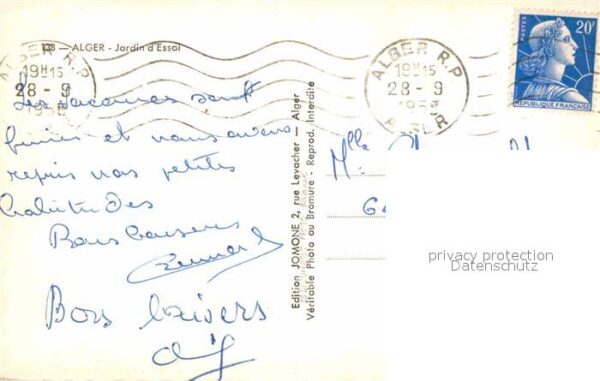 138 — ALGER - Jardin d'Essai
ALGER R.P
19H15
28 - 9
ALGER R.P
19H15
28 - 9
ALGER
POSTES
20F
REPUBLIQUE FRANÇAISE
Les vacances sont
finies et nous avons
repris nos petites
habitudes
Bons baisers
Bons baisers
Edition JOMONE 2, rue Levacher — Alger
Véritable Photo au Bromure - Reprod. Interdite
Mlle
privacy protection
Datenschutz